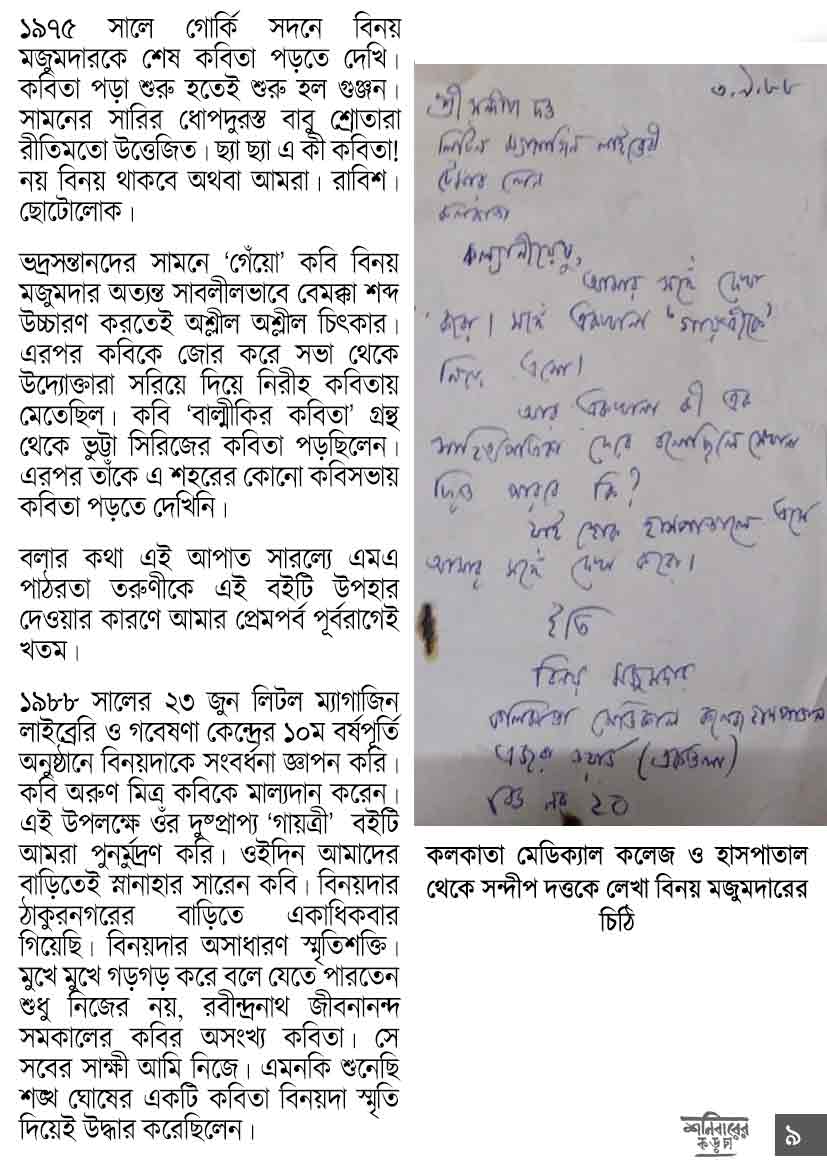 ১৯৭৫ সালে গোর্কি সদনে বিনয়
মজুমদারকে শেষ কবিতা পড়তে দেখি।
কবিতা পড়া শুরু হতেই শুরু হল গুঞ্জন।
সামনের সারির ধোপদুরস্ত বাবু শ্রোতারা
রীতিমতো উত্তেজিত। ছ্যা ছ্যা এ কী কবিতা!
নয় বিনয় থাকবে অথবা আমরা। রাবিশ।
ছোটোলোক।
ভদ্রসন্তানদের সামনে ‘গেঁয়ো’ কবি বিনয়
মজুমদার অত্যন্ত সাবলীলভাবে বেমক্কা শব্দ
উচ্চারণ করতেই অশ্লীল অশ্লীল চিৎকার।
এরপর কবিকে জোর করে সভা থেকে
উদ্যোক্তারা সরিয়ে দিয়ে নিরীহ কবিতায়
মেতেছিল। কবি ‘বাল্মীকির কবিতা’ গ্রন্থ
থেকে ভুট্টা সিরিজের কবিতা পড়ছিলেন।
এরপর তাঁকে এ শহরের কোনো কবিসভায়
কবিতা পড়তে দেখিনি।
বলার কথা এই আপাত সারল্যে এমএ
পাঠরতা তরুণীকে এই বইটি উপহার
দেওয়ার কারণে আমার প্রেমপর্ব পূর্বরাগেই
খতম।
১৯৮৮ সালের ২৩ জুন লিটল ম্যাগাজিন
লাইব্রেরি ও গবেষণা কেন্দ্রের ১০ম বর্ষপূর্তি
অনুষ্ঠানে বিনয়দাকে সংবর্ধনা জ্ঞাপন করি।
কবি অরুণ মিত্র কবিকে মাল্যদান করেন।
এই উপলক্ষে ওঁর দুষ্প্রাপ্য ‘গায়ত্রী’ বইটি
আমরা পুনর্মুদ্রণ করি। ওইদিন আমাদের
বাড়িতেই স্নানাহার সারেন কবি। বিনয়দার
ঠাকুরনগরের বাড়িতে একাধিকবার
গিয়েছি। বিনয়দার অসাধারণ স্মৃতিশক্তি।
মুখে মুখে গড়গড় করে বলে যেতে পারতেন
শুধু নিজের নয়, রবীন্দ্রনাথ জীবনানন্দ
সমকালের কবির অসংখ্য কবিতা। সে
সবের সাক্ষী আমি নিজে। এমনকি শুনেছি
শঙ্খ ঘোষের একটি কবিতা বিনয়দা স্মৃতি
দিয়েই উদ্ধার করেছিলেন।
শ্রী সন্দীপ দত্ত
লিটল ম্যাগাজিন লাইব্রেরী
টেমার লেন
কলকাতা
কল্যাণীয়েষু,
আমার সঙ্গে দেখা
করো। সঙ্গে একখানা ‘গায়ত্রীকে’
নিয়ে এসো।
আর একখানা কী এক
দেবে বলেছিলে সেখানা
দিতে পারবে কি?
যাই হোক হাসপাতালে এসে
আমার সঙ্গে দেখা করো।
ইতি
বিনয় মজুমদার
কলিকাতা মেডিকাল কলেজ হাসপাতাল
এজরা ওয়ার্ড (একতলা)
বেড নং ২০
কলকাতা মেডিক্যাল কলেজ ও হাসপাতাল
থেকে সন্দীপ দত্তকে লেখা বিনয় মজুমদারের
চিঠি
শনিবারের
কড়চা
৯